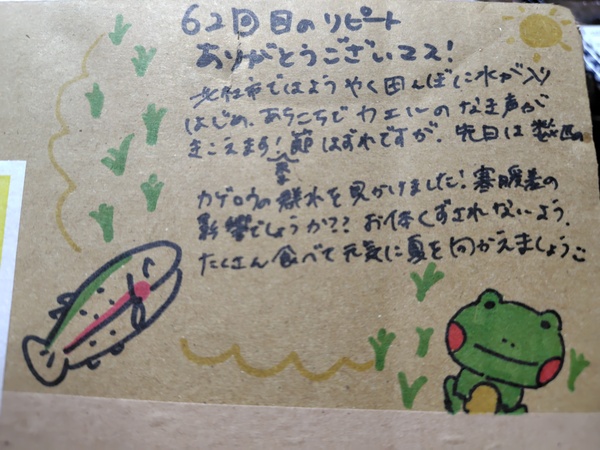 62回目のリピート
ありがとうございます!
北杜市ではようやく田んぼに水が入り
はじめ、あちこちでカエルのなき声が
きこえます!季節はずれですが、先日は数匹の
カゲロウの群れを見かけました!寒暖差の
影響でしょうか?? お体くずされないよう、
たくさん食べて元気に夏を向かえましょう♪